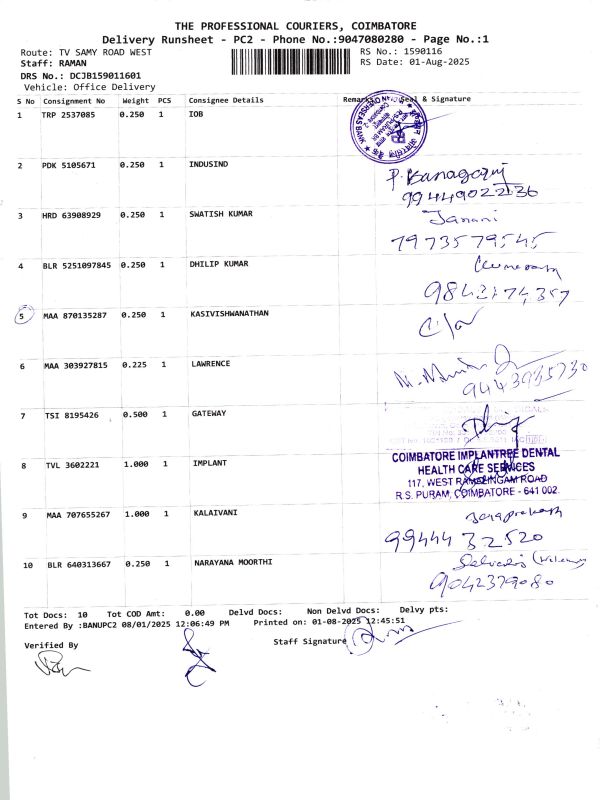 THE PROFESSIONAL COURIERS, COIMBATORE
Delivery Runsheet - PC2 - Phone No.:9047080280 - Page No.:1
Route: TV SAMY ROAD WEST RS No.: 1590116
Staff: RAMAN RS Date: 01-Aug-2025
DRS No.: DCJB159011601
Vehicle: Office Delivery
S No Consignment No Weight PCS Consignee Details Remarks Seal & Signature
1 TRP 2537085 0.250 1 IOB
2 PDK 5105671 0.250 1 INDUSIND
9944902236
3 HRD 63908929 0.250 1 SWATISH KUMAR Janani
7973579545
4 BLR 5251097845 0.250 1 DHILIP KUMAR
9842174357
5 MAA 870135287 0.250 1 KASIVISHWANATHAN
6 MAA 303927815 0.225 1 LAWRENCE
9443935730
7 TSI 8195426 0.500 1 GATEWAY
8 TVL 3602221 1.000 1 IMPLANT
COIMBATORE IMPLANTREE DENTAL
HEALTH CARE SERVICES
117, WEST RAMALINGAM ROAD
R.S. PURAM, COIMBATORE - 641 002
9 MAA 707655267 1.000 1 KALAIVANI Jayaprakash
9944432520
10 BLR 640313667 0.250 1 NARAYANA MOORTHI
9042379080
Tot Docs: 10 Tot COD Amt: 0.00 Delvd Docs: Non Delvd Docs: Delvy pts:
Entered By :BANUPC2 08/01/2025 12:06:49 PM Printed on: 01-08-2025 12:45:51
Verified By Staff Signature